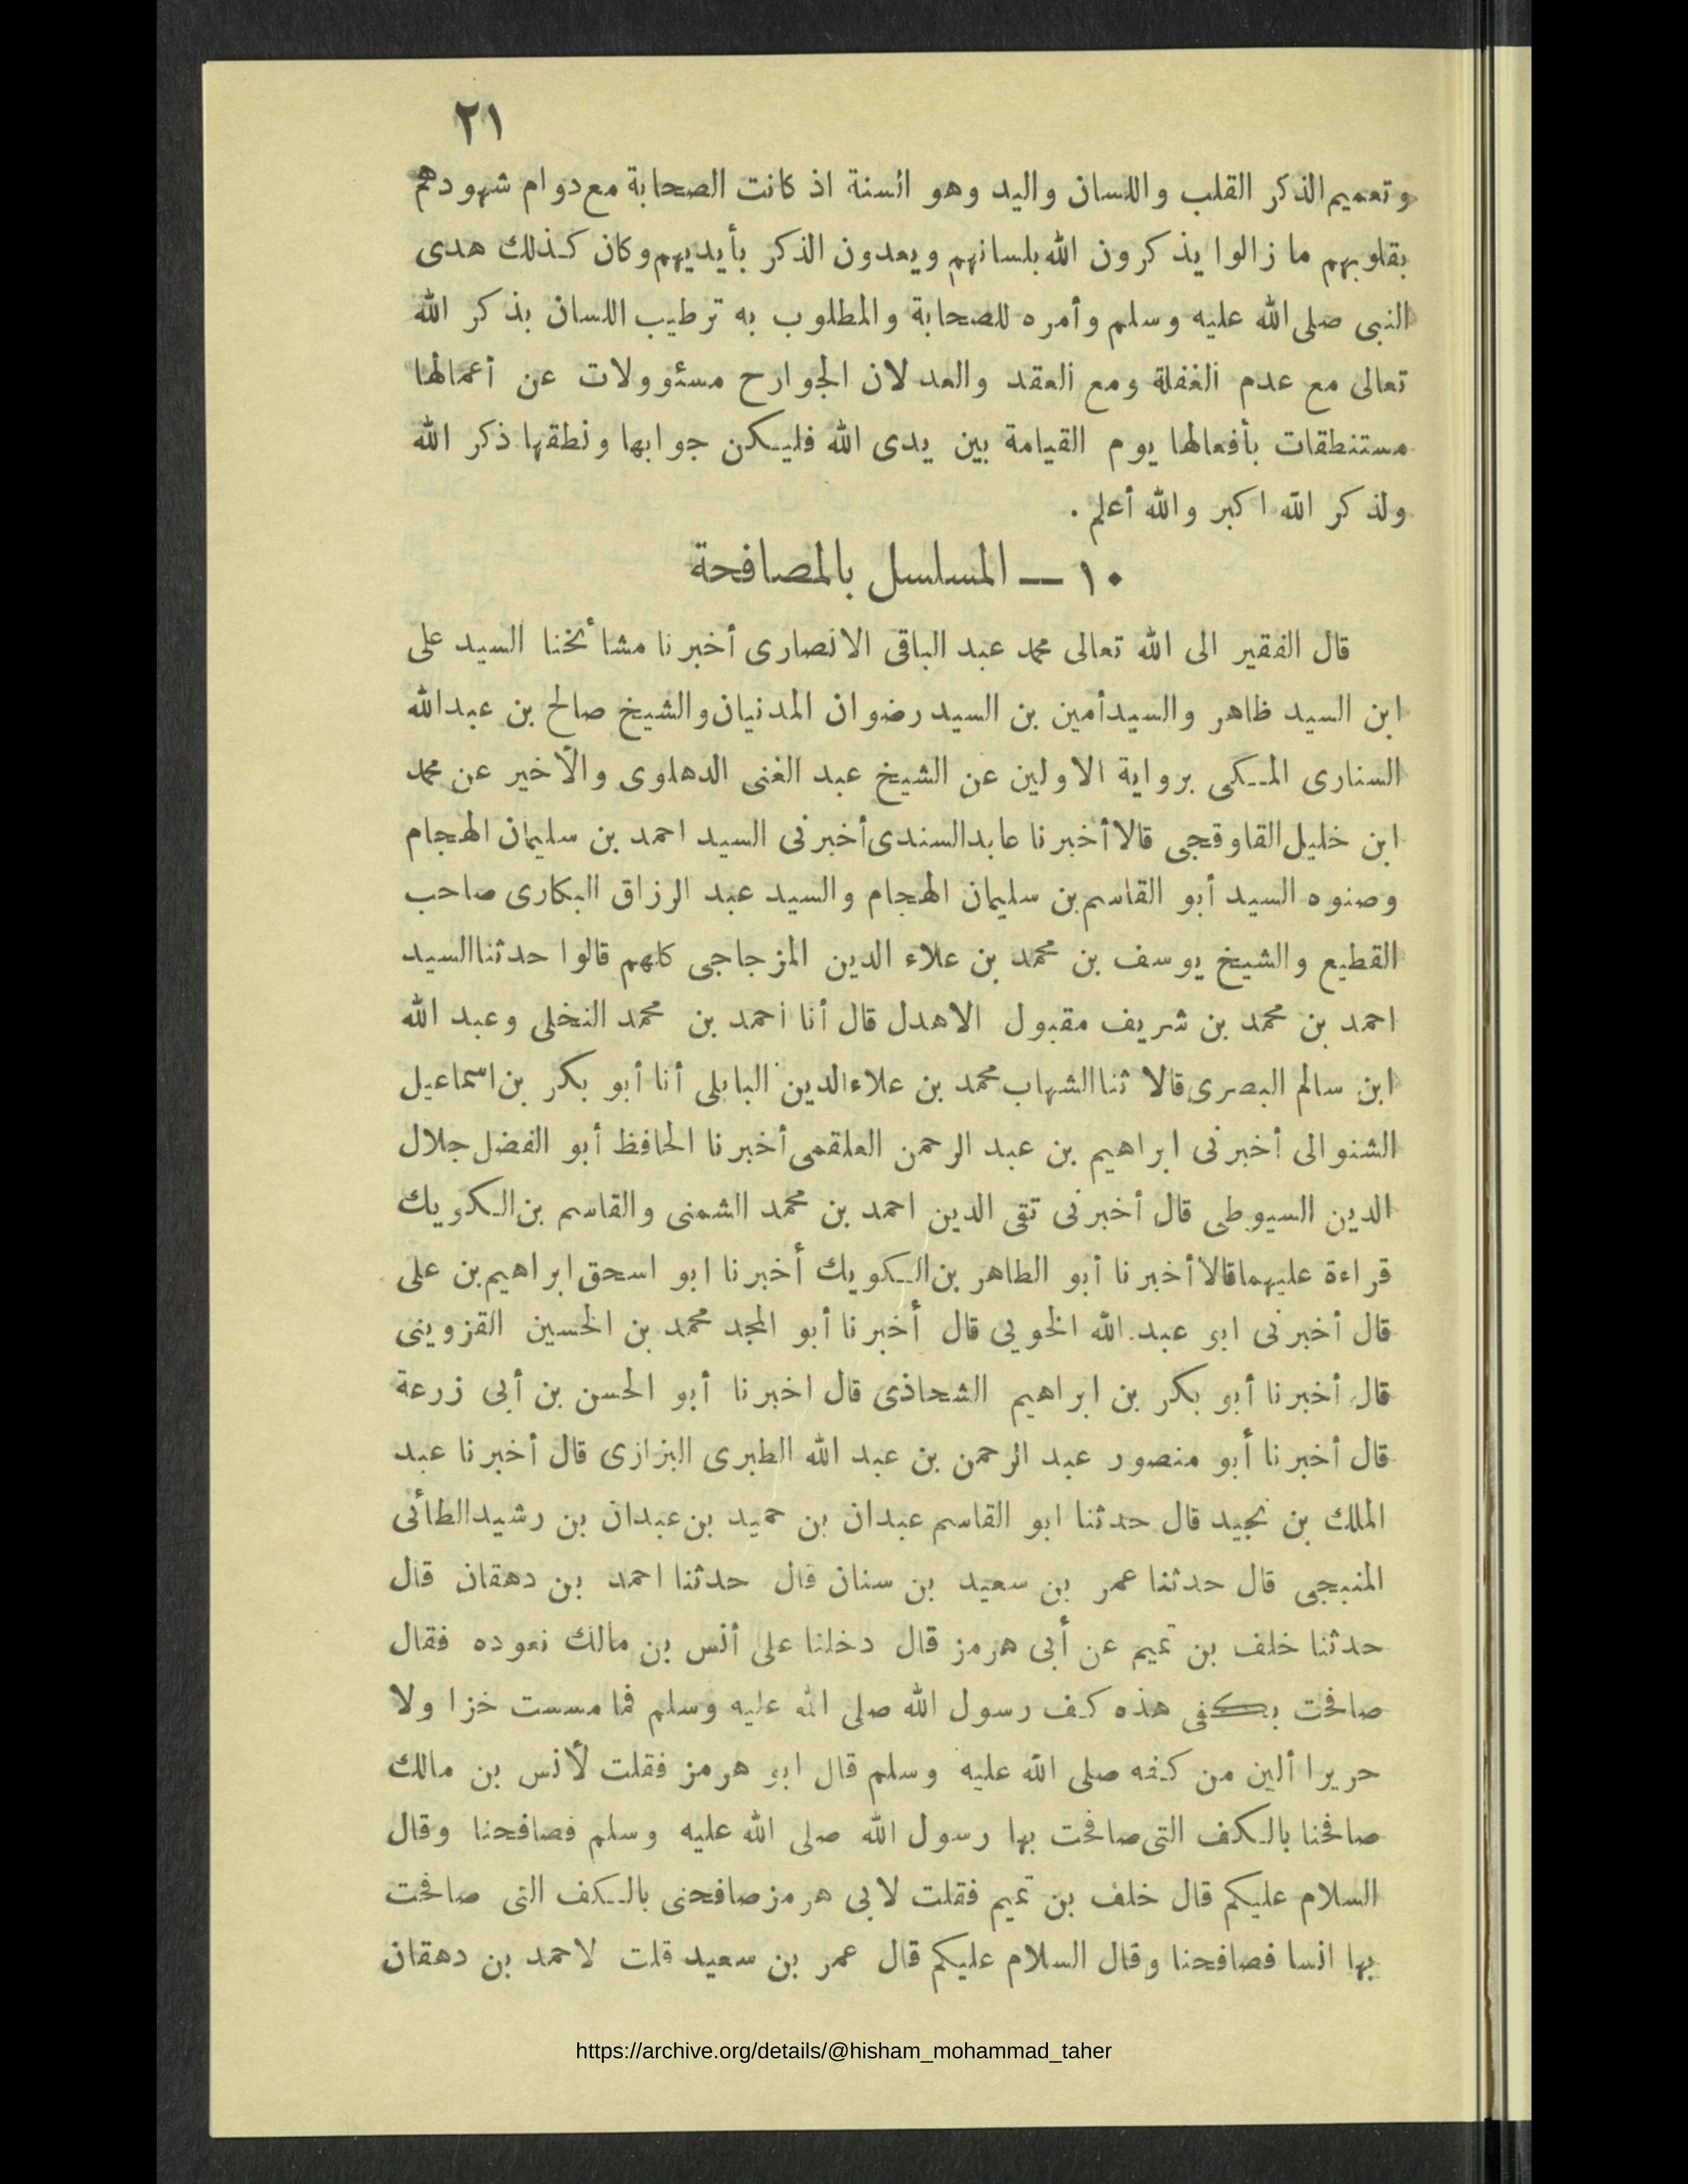 ٢١
وتعميم الذكر القلب واللسان واليد وهو السنة اذ كانت الصحابة مع دوام شهودهم
بقلوبهم ما زالوا يذكرون الله بلسانهم ويعدون الذكر بأيديهم وكان كذلك هدى
النبى صلى الله عليه وسلم وأمره للصحابة والمطلوب به ترطيب اللسان بذكر الله
تعالى مع عدم الغفلة ومع العقد والعد لان الجوارح مسئوولات عن أعمالها
مستنطقات بأفعالها يوم القيامة بين يدى الله فليكن جوابها ونطقها ذكر الله
ولذكر الله اكبر والله أعلم .
١٠ — المسلسل بالمصافحة
قال الفقير الى الله تعالى محمد عبد الباقى الانصارى أخبرنا مشائخنا السيد على
ابن السيد ظاهر والسيد أمين بن السيد رضوان المدنيان والشيخ صالح بن عبد الله
السنارى المكى برواية الاولين عن الشيخ عبد الغنى الدهلوى والأخير عن محمد
ابن خليل القاوقجى قالا أخبرنا عابد السندى أخبرنى السيد احمد بن سليمان الهجام
وصنوه السيد أبو القاسم بن سليمان الهجام والسيد عبد الرزاق البكارى صاحب
القطيع والشيخ يوسف بن محمد بن علاء الدين المزجاجى كلهم قالوا حدثنا السيد
احمد بن محمد بن شريف مقبول الاهدل قال أنا احمد بن محمد النخلى وعبد الله
ابن سالم البصرى قالا ثنا الشهاب محمد بن علاء الدين البابلى أنا أبو بكر بن اسماعيل
الشنوالى أخبرنى ابراهيم بن عبد الرحمن العلقمى أخبرنا الحافظ أبو الفضل جلال
الدين السيوطى قال أخبرنى تقى الدين احمد بن محمد الشمنى والقاسم بن الكويك
قراءة عليهما قالا أخبرنا أبو الطاهر بن الكويك أخبرنا ابو اسحق ابراهيم بن على
قال أخبرنى ابو عبد الله الخويى قال أخبرنا أبو المجد محمد بن الحسين القزوينى
قال أخبرنا أبو بكر بن ابراهيم الشحاذى قال اخبرنا أبو الحسن بن أبى زرعة
قال أخبرنا أبو منصور عبد الرحمن بن عبد الله الطبرى البزازى قال أخبرنا عبد
الملك بن نجيد قال حدثنا ابو القاسم عبدان بن حميد بن عبدان بن رشيد الطائى
المنبجى قال حدثنا عمر بن سعيد بن سنان قال حدثنا احمد بن دهقان قال
حدثنا خلف بن تميم عن أبى هرمز قال دخلنا على أنس بن مالك نعوده فقال
صافحت بكفى هذه كف رسول الله صلى الله عليه وسلم فما مسست خزا ولا
حريرا ألين من كفه صلى الله عليه وسلم قال ابو هرمز فقلت لأنس بن مالك
صافحنا بالكف التى صافحت بها رسول الله صلى الله عليه وسلم فصافحنا وقال
السلام عليكم قال خلف بن تميم فقلت لابى هرمز صافحنى بالكف التى صافحت
بها انسا فصافحنا وقال السلام عليكم قال عمر بن سعيد قلت لاحمد بن دهقان
https://archive.org/details/@hisham_mohammad_taher